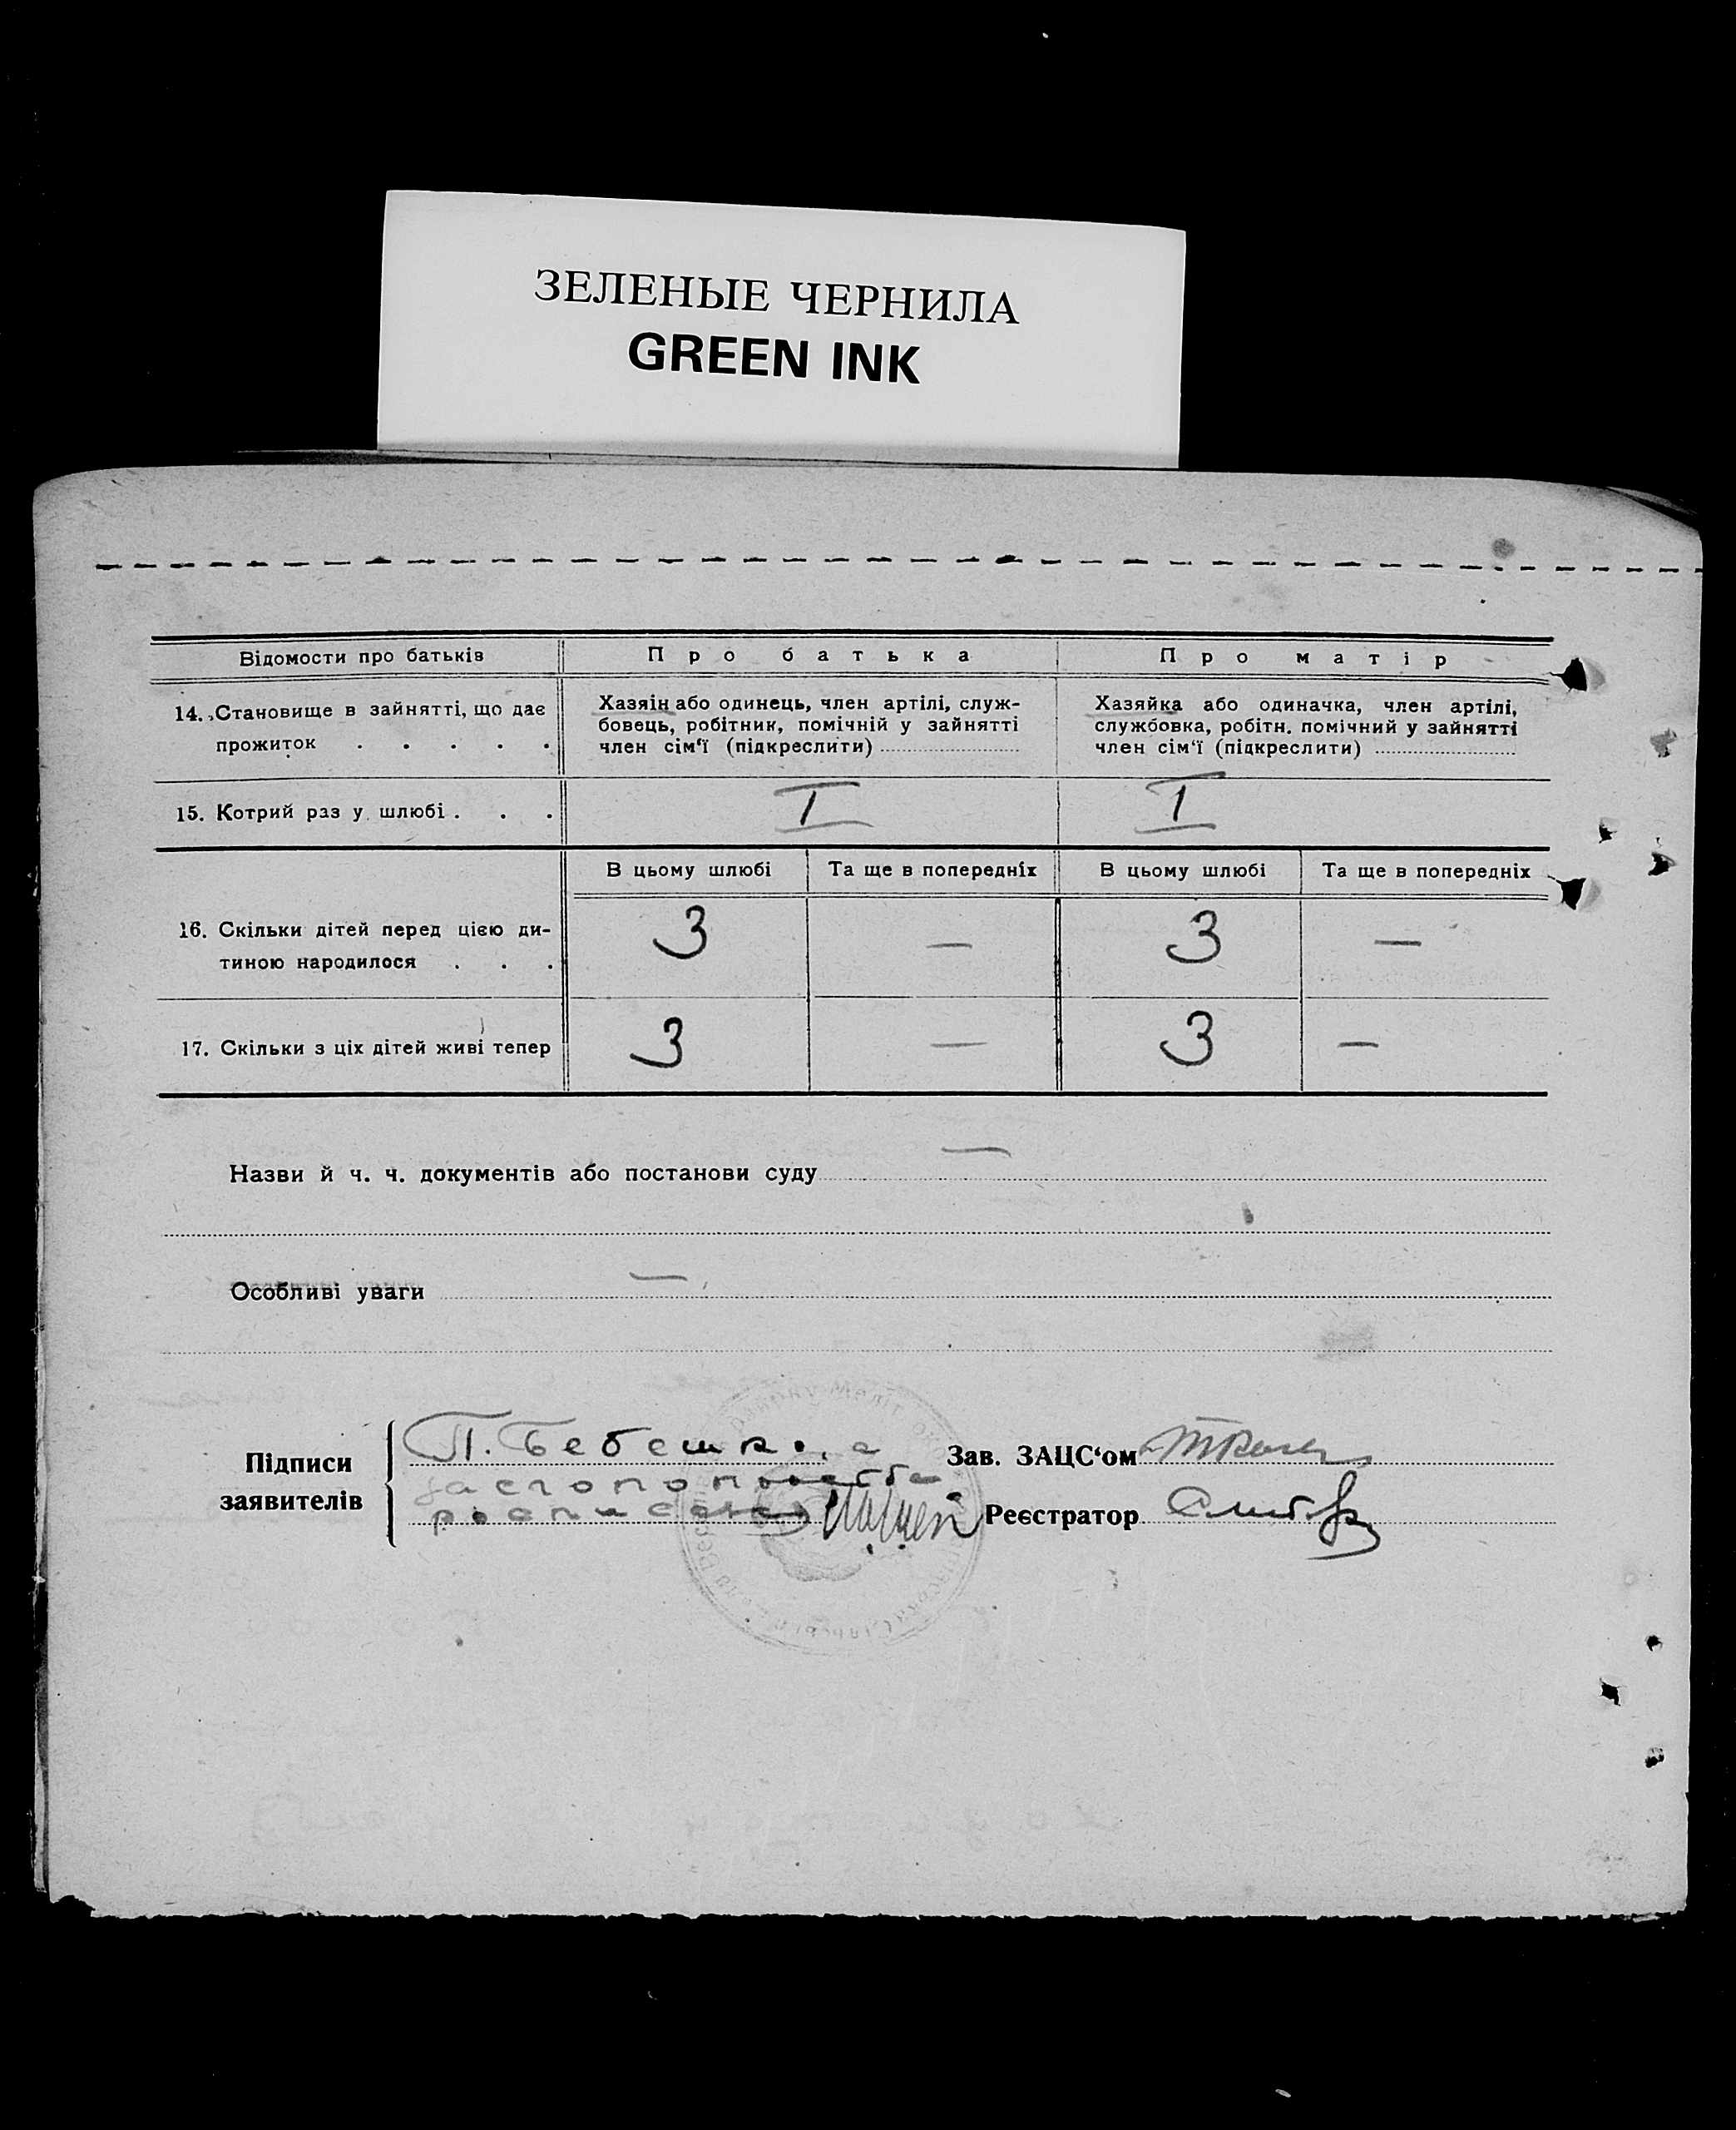 ЗЕЛЕНЫЕ ЧЕРНИЛА
GREEN INK
Відомости про батьків
Про батька
Про матір
14. Становище в зайнятті, що дає
прожиток . . . . .
Хазяін або одинець, член артілі, служ-
бовець, робітник, помічній у зайнятті
член сім‘ї (підкреслити)
Хазяйка або одиначка, член артілі,
службовка, робітн. помічний у зайнятті
член сім‘ї (підкреслити)
15. Котрий раз у шлюбі . . .
I
I
В цьому шлюбі
Та ще в попередніх
В цьому шлюбі
Та ще в попередніх
16. Скільки дітей перед цією ди-
тиною народилося . . .
3
—
3
—
17. Скільки з ціх дітей живі тепер
3
—
3
—
Назви й ч. ч. документів або постанови суду —
Особливі уваги —
Підписи
заявителів
П. Бебешко, а
Зав. ЗАЦС‘ом
Реєстратор